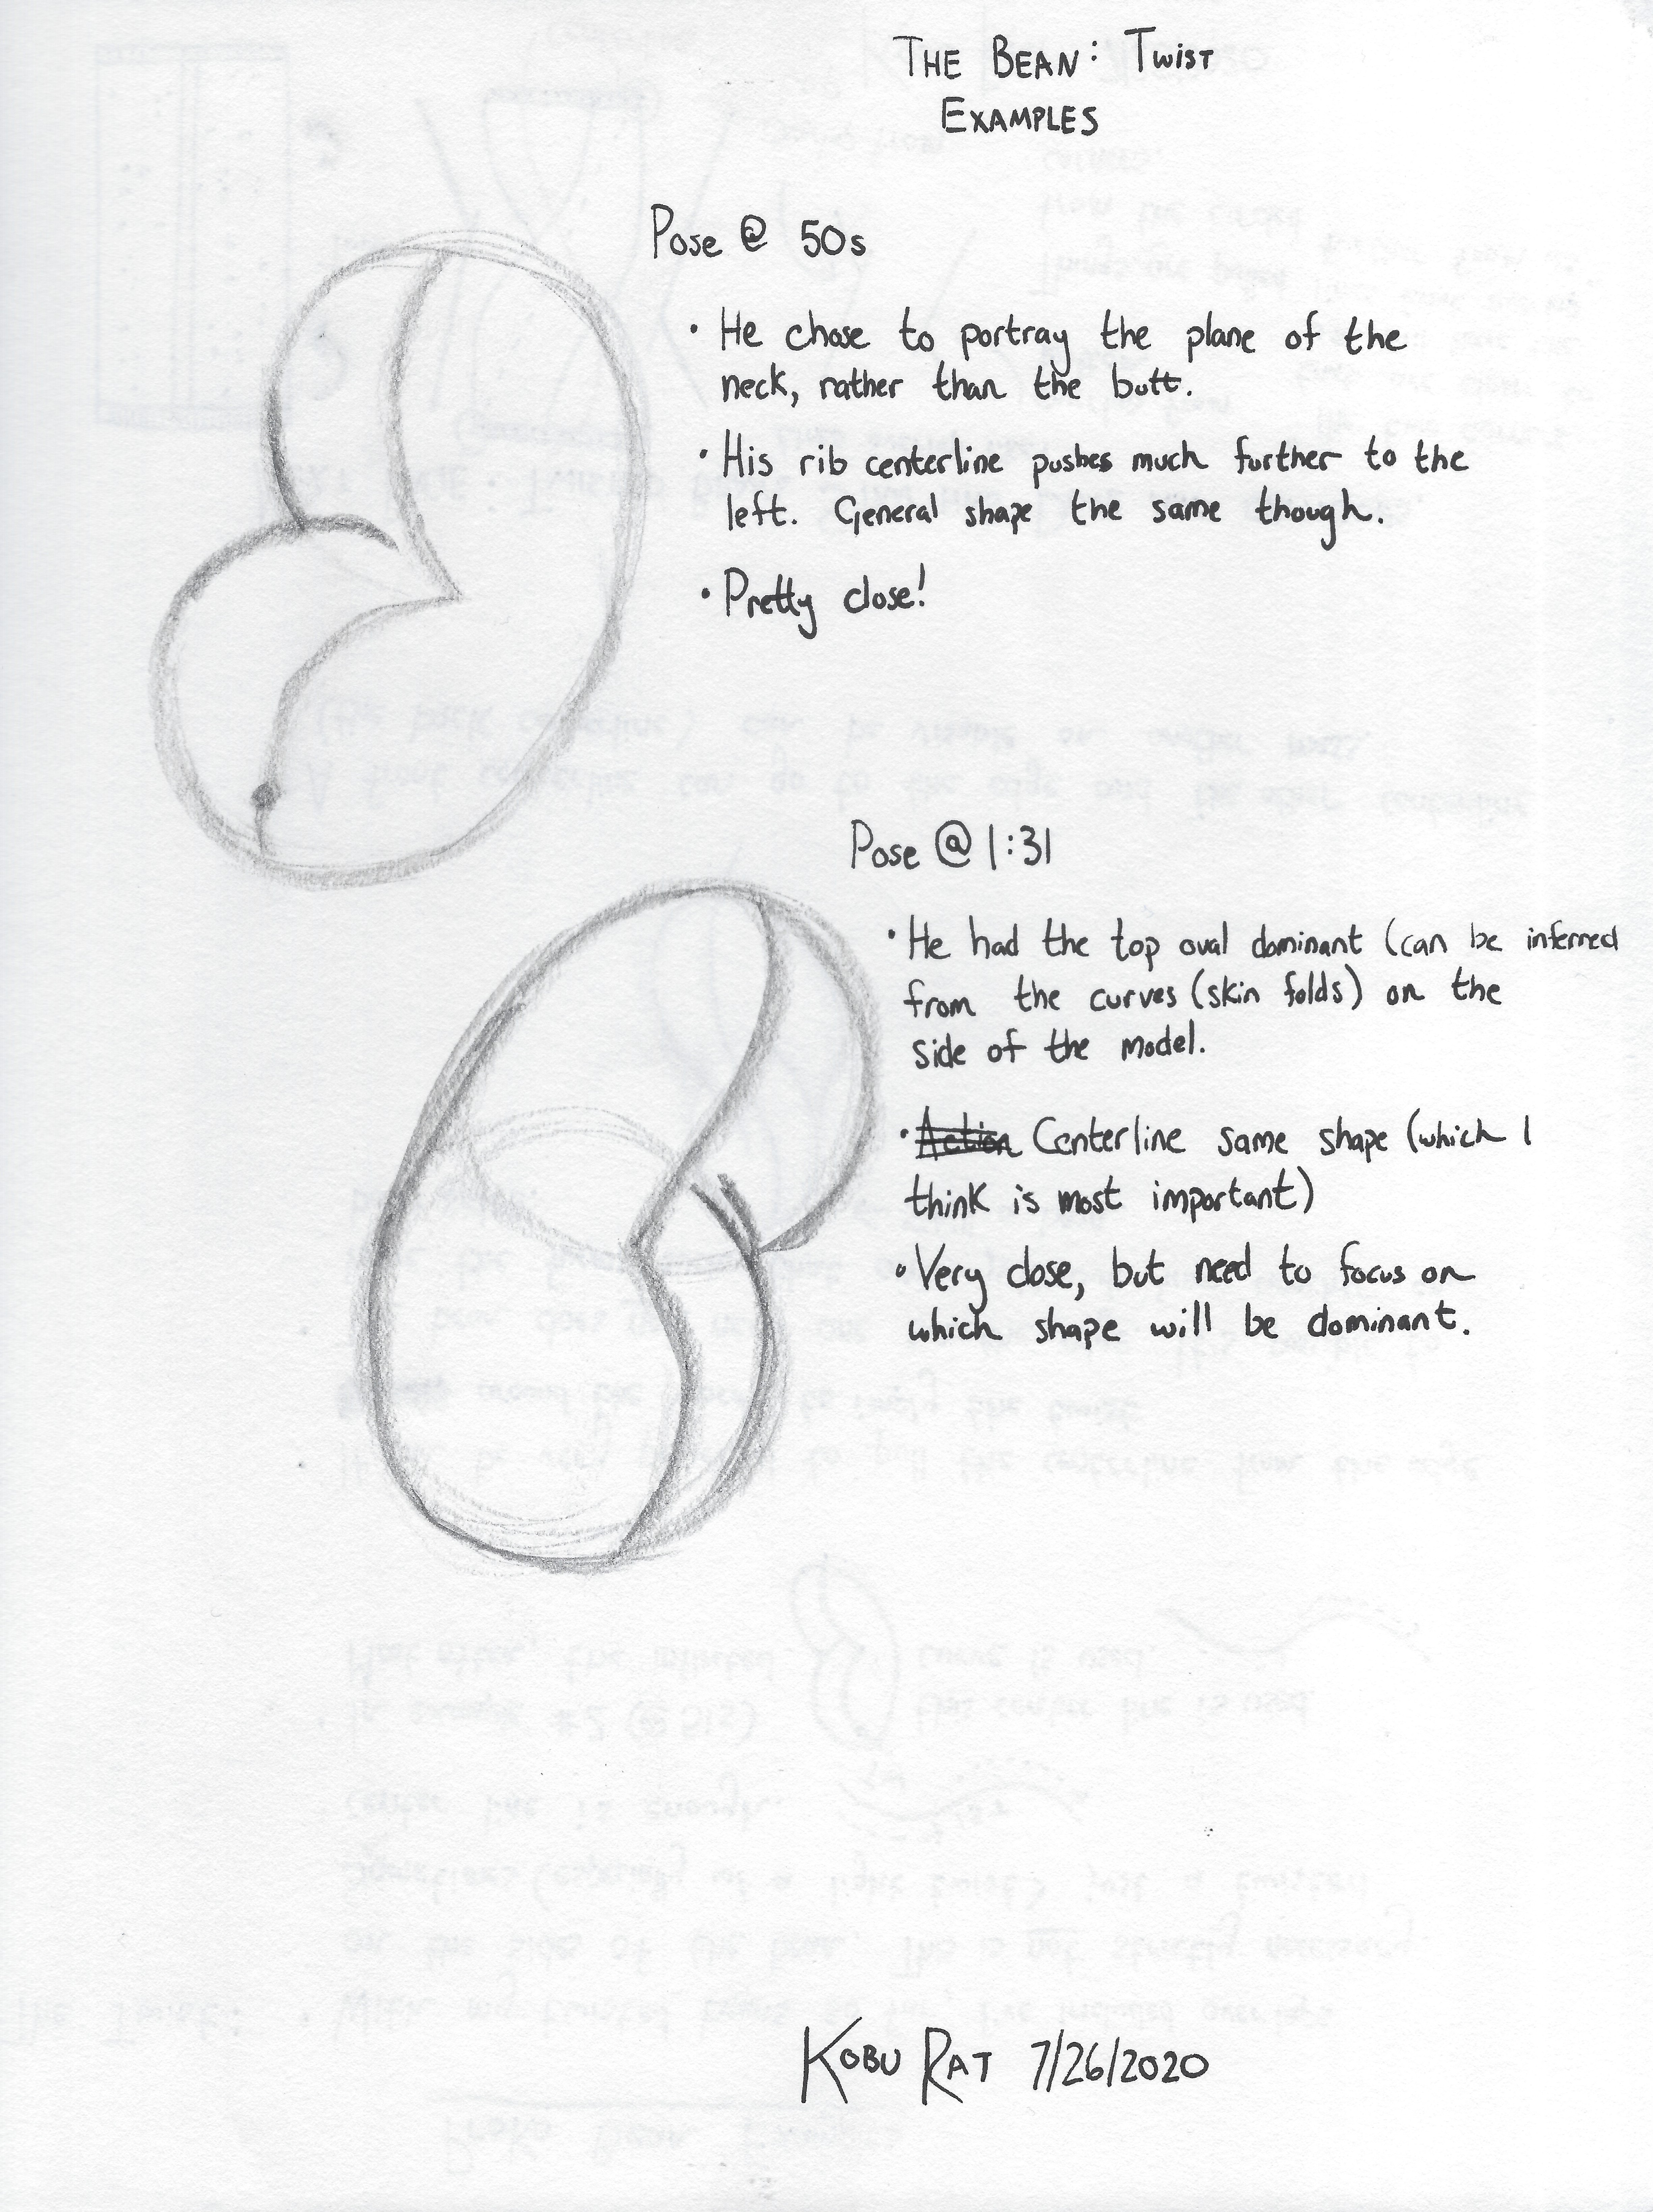 THE BEAN: TWIST
EXAMPLES
Pose @ 50s
• He chose to portray the plane of the
neck, rather than the butt.
• His rib centerline pushes much further to the
left. General shape the same though.
• Pretty close!
Pose @ 1:31
• He had the top oval dominant (can be inferred
from the curves (skin folds) on the
side of the model.
• Action Centerline same shape (which I
think is most important)
• Very close, but need to focus on
which shape will be dominant.
KOBU RAT 7/26/2020